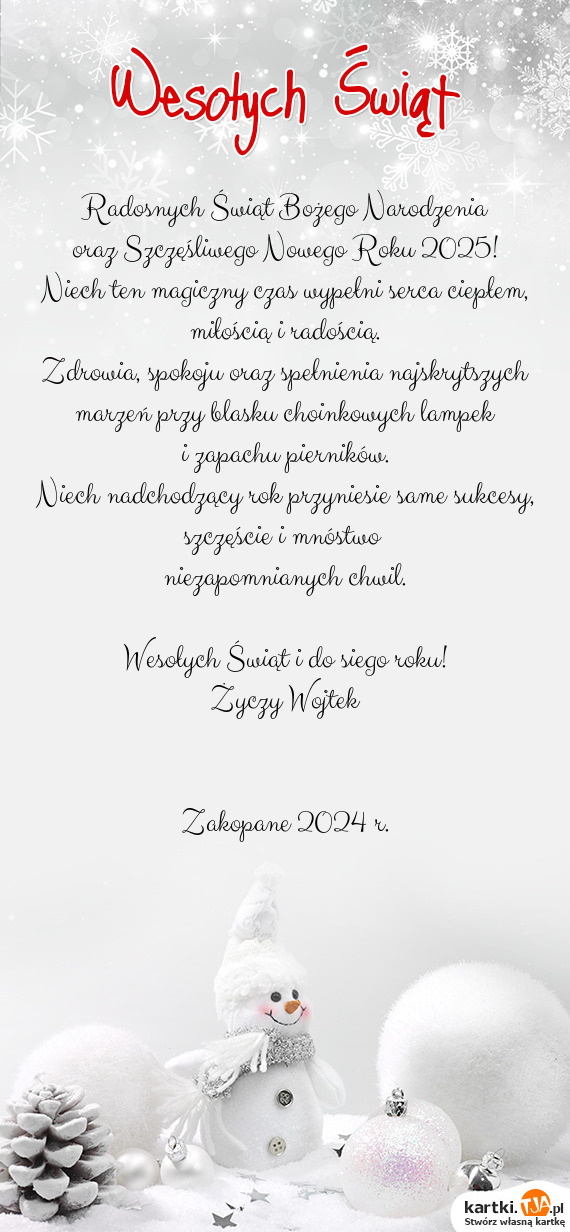 Wesołych Świąt
Radosnych Świąt Bożego Narodzenia
oraz Szczęśliwego Nowego Roku 2025!
Niech ten magiczny czas wypełni serca ciepłem,
miłością i radością.
Zdrowia, spokoju oraz spełnienia najskrytszych
marzeń przy blasku choinkowych lampek
i zapachu pierników.
Niech nadchodzący rok przyniesie same sukcesy,
szczęście i mnóstwo
niezapomnianych chwil.
Wesołych Świąt i do siego roku!
Życzy Wojtek
Zakopane 2024 r.
kartki.TJA.pl
Stwórz własną kartkę